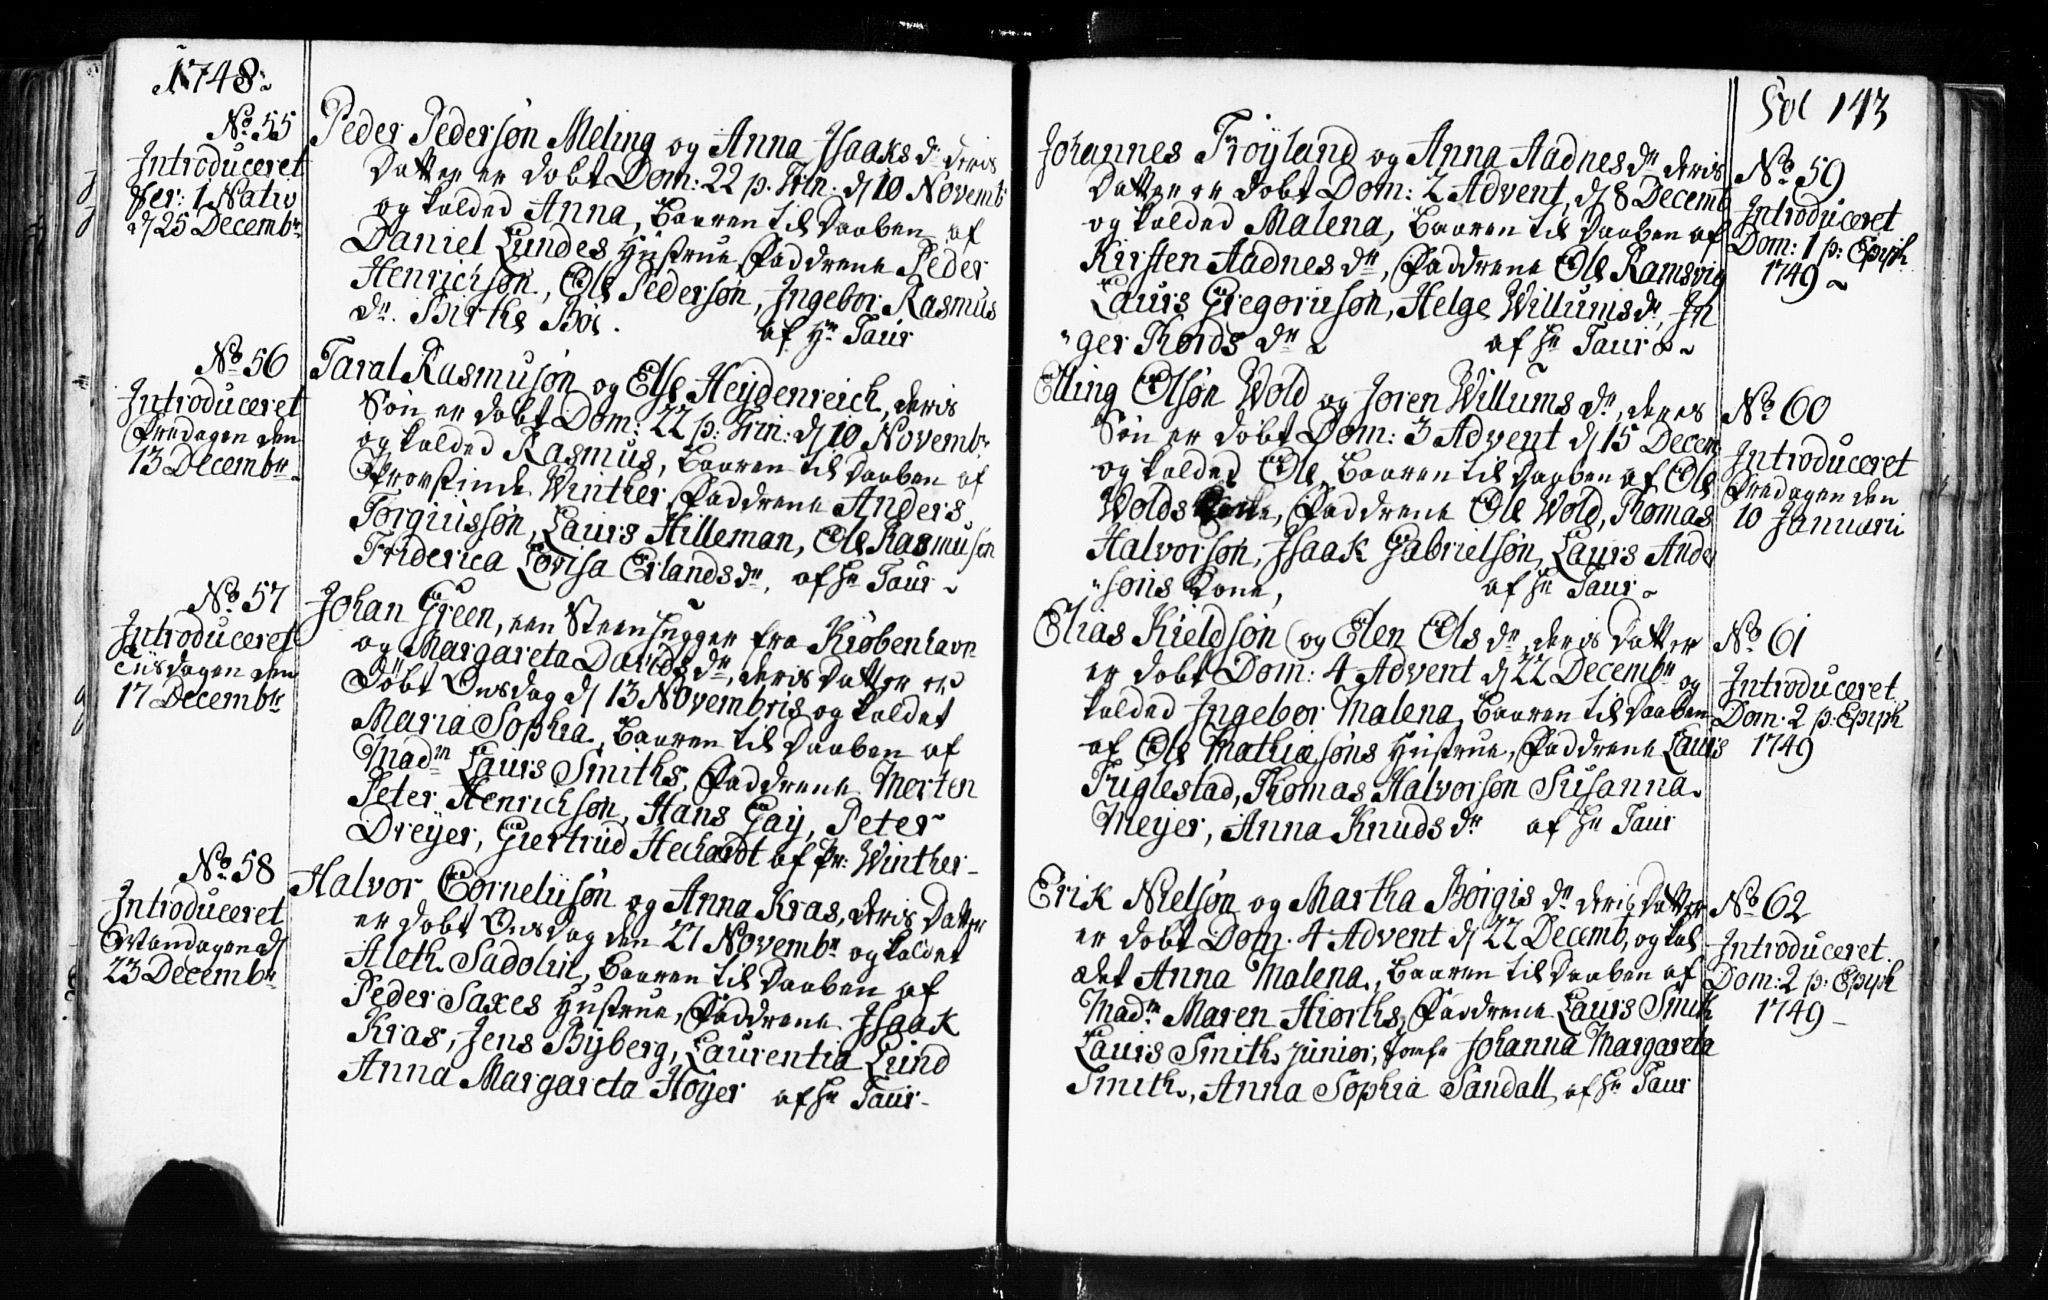 1748
No. 55
Introduceret
Fer: 1 Nativ
d 25 Decembr.
Peder Pedersøn Meling og Anna Isaaks dr. deris
Datter er døbt Dom: 22 p. Trin. d 10 Novemb
og kalded Anna, Baaren til Daaben af
Daniel Lundes Hustrue, Faddrene Peder
Henrichsøn, Ole Pedersøn, Ingebor Rasmus
dr. Birthe Boe. af Hr. Taur
No. 56
Introduceret
Fredagen den
13 Decembr.
Taral Rasmusøn og Else Heydenreich, deris
Søn er døbt Dom: 22 p: Trin: d 10 Novembr.
og kalded Rasmus, Baaren til Daaben af
Provstinde Winther, Faddrene Anders
Torgiussøn, Laurs Hilleman, Ole Rasmusøn
Friderica Lovisa Erlands dr. af Hr Taur
No. 57
Introduceret
Tiisdagen den
17 Decembr
Johan Green, een Steenhugger fra Kiøbenhavn
og Margareta Davids dr., deris Datter er
Døbt Onsdag d 13 Novembris og kaldet
Maria Sophia, Baaren til Daaben af
Madm Laurs Smiths, Faddrene Morten
Peter Henrichsøn, Hans Gay, Peter
Dreyer, Giertrud Hechardt af Pr: Winther
No. 58
Introduceret
Mandagen d
23 Decembr
Halvor Corneliusøn og Anna Kras, deris Datter
er døbt Onsdag den 27 Novembr og kaldet
Aleth Sadolin, Baaren til Daaben af
Peder Saxes Hustrue, Faddrene Isaak
Kras, Jens Byberg, Laurentia Lund
Anna Margareta Høyer af Hr Taur
Fol 143
Johannes Trøyland og Anna Aadnes dr deris
Datter er døbt Dom: 2 Advent, d 8 Decemb
og kalded Malena, Baaren til Daaben af
Kirsten Aadnes dr, Faddrene Ole Ramsvig
Laurs Gregoriusøn, Helge Willums dr, In
ger Thords dr af Hr Taur
No 59
Introduceret
Dom: 1 p: Epiph
1749
Elling Olsøn Wold og Joren Willums dr, deres
Søn er døbt Dom: 3 Advent d 15 Decem
og kalded Ole, Baaren til Daaben af Ole
Wolds Kone, Faddrene Ole Wold, Thomas
Halvorsøn, Isaak Gabrielsøn, Laurs Ander
søns Kone, af Hr Taur
No 60
Introduceret
Fredagen den
10 Januarii
Elias Kieldsøn og Elen Ols dr deris Datter
er døbt Dom: 4 Advent d 22 Decembr og
kalded Ingebor Malena, Baaren til Daaben
af Ole Mathiæsøns Hustrue, Faddrene Laurs
Fuglestad, Thomas Halvorsøn Susanna
Meyer, Anna Knuds dr af Hr Taur
No 61
Introduceret
Dom: 2 p: Epiph
1749
Erik Nielsøn og Martha Børgis dr deris Datter
er døbt Dom. 4 Advent d 22 Decemb, og kal
det Anna Malena, Baaren til Daaben af
Madm Maren Hiorths, Faddrene Laurs Smith
Laurs Smith junior, Jomfr Johanna Margareta
Smith, Anna Sophia Sandall, af Hr Taur
No 62
Introduceret
Dom: 2 p: Epiph
1749